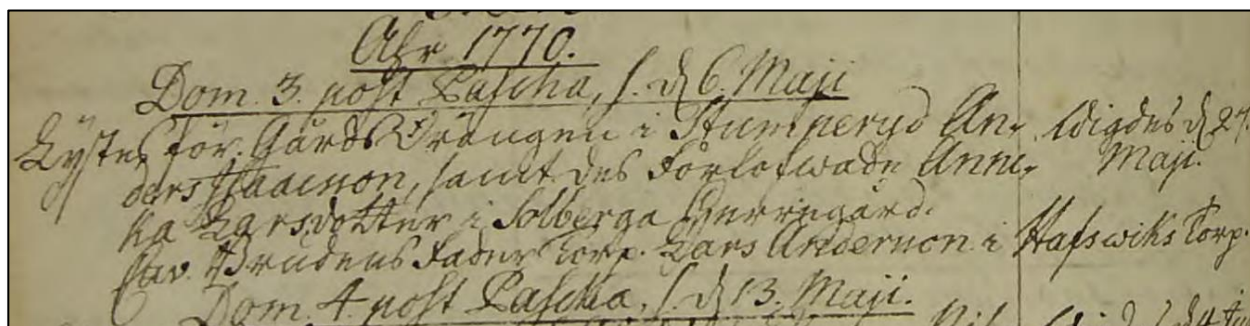 Åhr 1770.
Dom. 3. post Pascha, s. d. 6. Maji
Lystes för. Gårds Drängen i Stumperyd An- Wigdes d. 27
ders Isaacsson, samt des Förlofwade Anni- Maji.
ka Larsdotter i Solberga Herregård.
Cav. Brudens Fader Torp. Lars Andersson i Hafswiks Torp.
Dom. 4. post Pascha, s. d. 13. Maji.